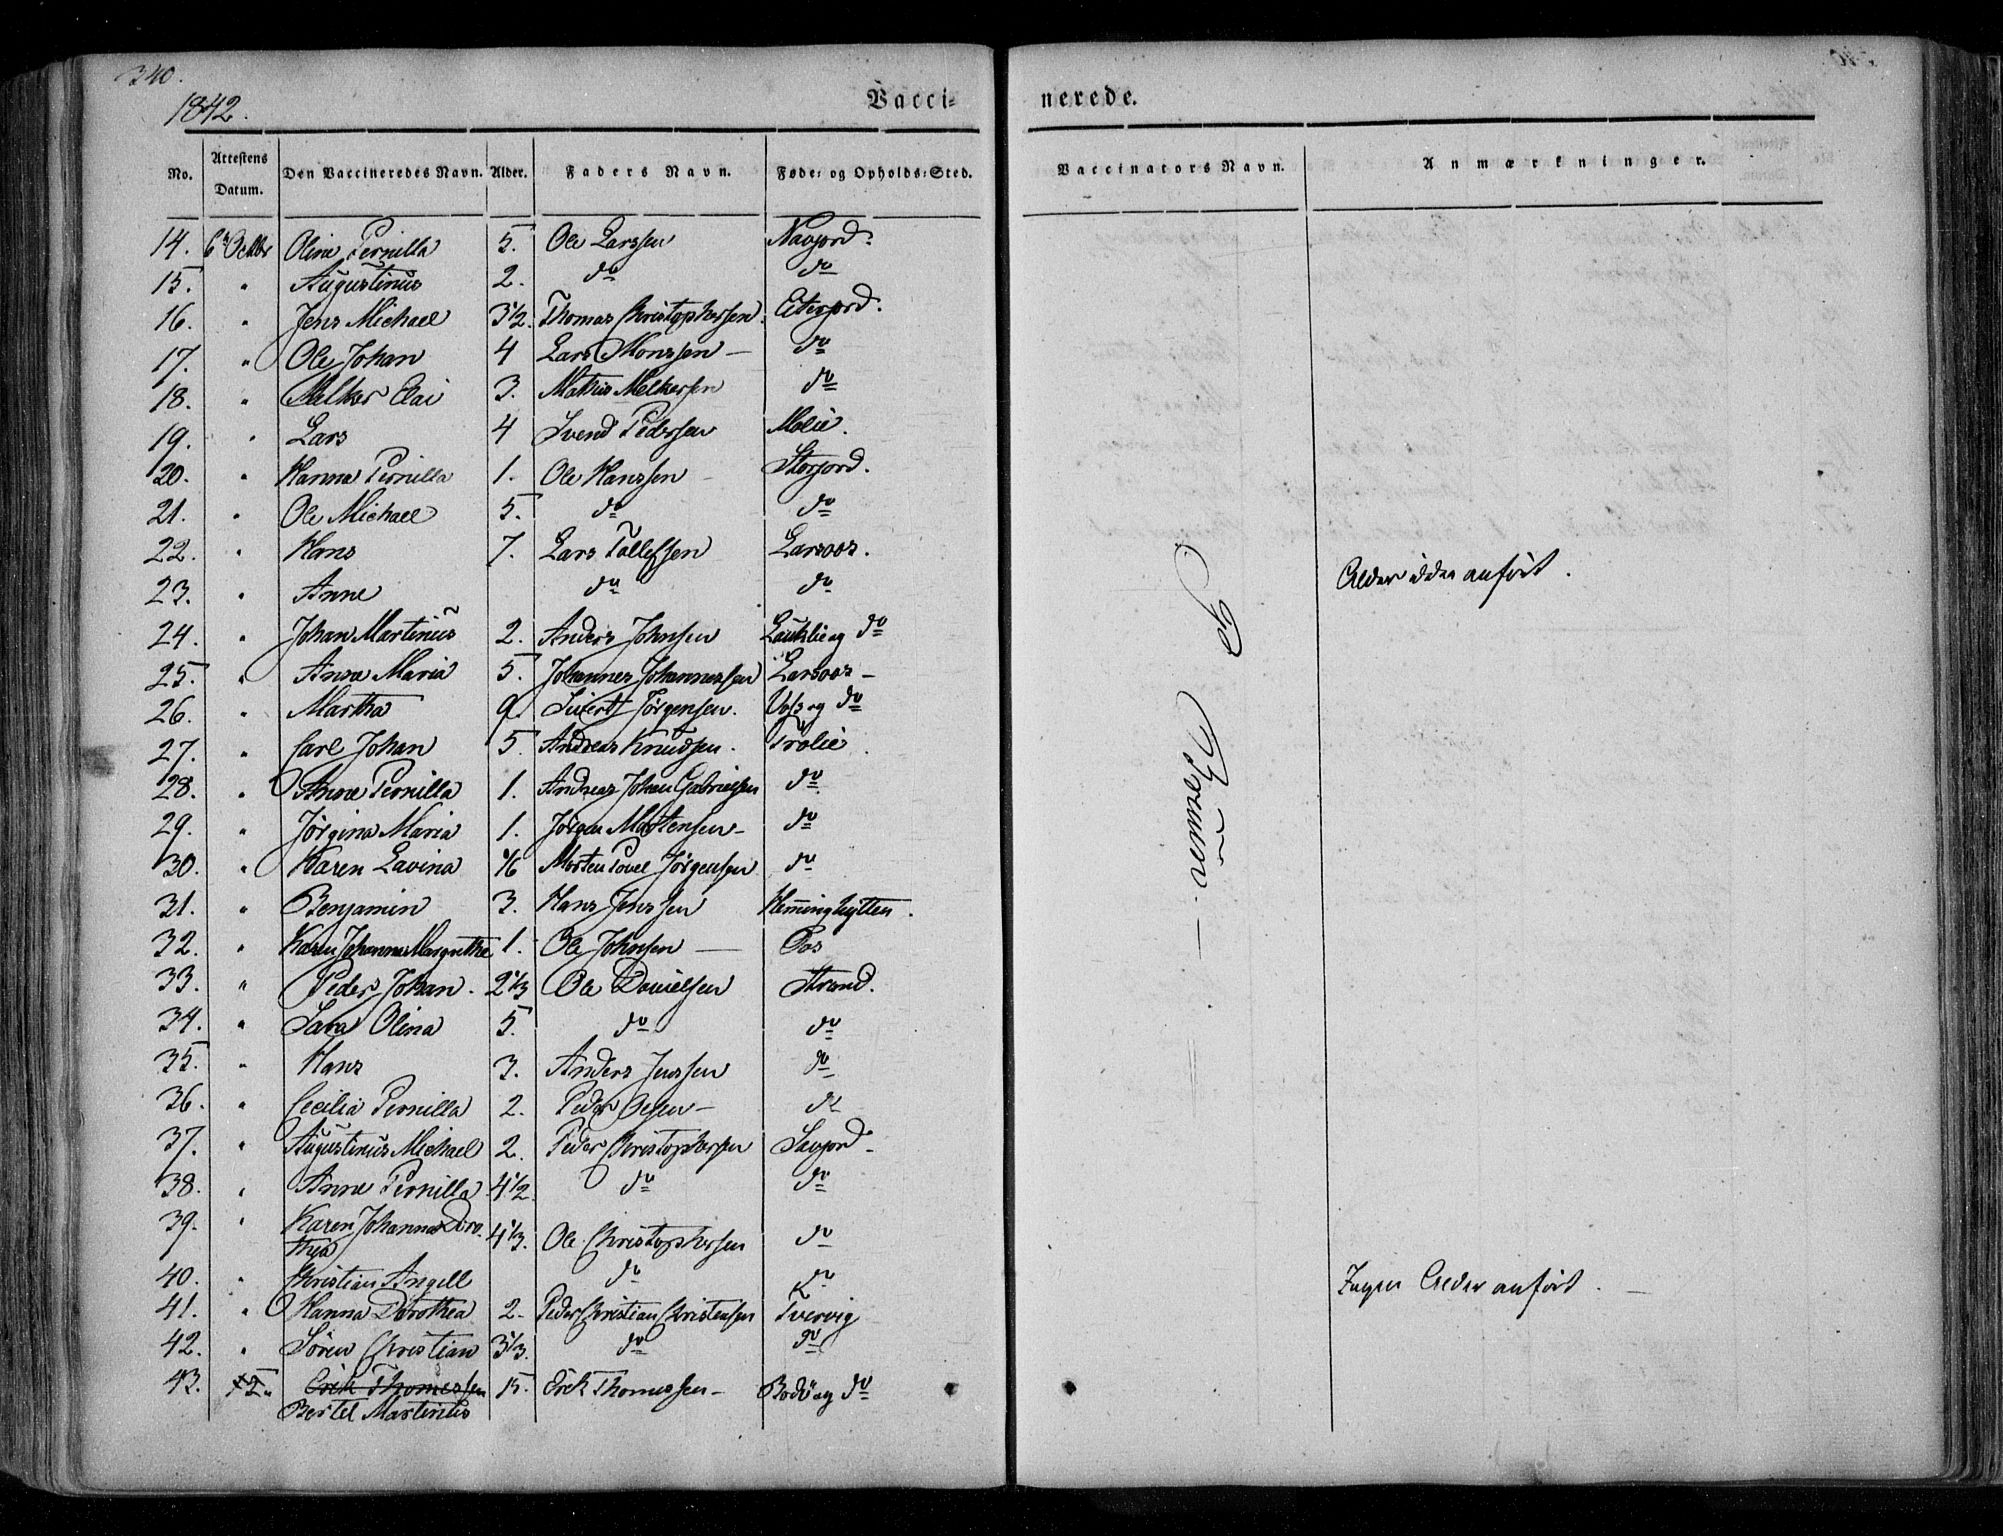 340.
1842.
Vacci- nerede.
No. Attestens Datum. Den Vaccineredes Navn. Alder. Faders Navn. Føde- og Opholds-Sted. Vaccinators Navn. Anmærkninger.
14. 6 Octbr Oline Pernilla 5. Ole Larssen Navjord.
15. " Augustinus 2. do do
16. " Jens Michael 3½. Thomas Christophersen. Eiterjord.
17. " Ole Johan 4 Lars Monssen – do
18. " Melker Elai 3. Mathis Melkersen do
19. " Lars 4 Svend Pedersen Molie.
20. " Hanna Pernilla 1. Ole Hanssen – Storjord.
21. " Ole Michael 5. do do
22. " Hans 7. Lars Tollefsen Larsoos.
23. " Anne do do Alder ikke anført.
24. " Johan Martinus 2. Anders Johnsen og do
25. " Anne Maria 5. Johannes Johannessen Larsoos –
26. " Martha 9. Sivert Jørgensen. og do
27. " Carl Johan 5. Andreas Knudsen. Trolie.
28. " Anne Pernilla 1. Andreas Johan Gabrielsen do
29. " Jørgina Maria 1. Jørgen Mortensen – do
30. " Karen Lavina Morten Povel Jørgensen do
31. " Benjamin 3. Hans Jenssen Hemminghytten.
32. " Karen Johanna Margrethe 1. Ole Johnsen – Oos
33. " Peder Johan. 2⅓ Ole Danielsen Strand.
34. " Sara Olina 5. do do
35. " Hans 3. Anders Jenssen do
36. " Cecilia Pernilla 2. Peder Olsen – do
37. " Augustinus Michael 2. Peder Christophersen Savjord –
38. " Anne Pernilla 4½. do do
39. " Karen Johanna Doro-
thea 4⅓. Ole Christophersen do
40. " Christian Angell do do Ingen Alder anført. –
41. " Hanna Dorothea 2. Peder Christian Christensen Tvervig
42. " Søren Christian 3⅓. do do
43. " Erik Thomessen 15. Erik Thomessen – Bodø og do
Bertel Martinus